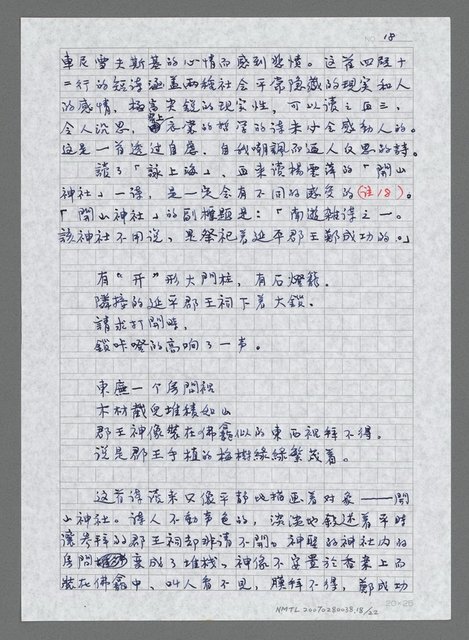 18
車尼雪夫斯基的心情而感到悲憤。這首四段十
二行的短詩涵蓋兩種社會平常隱藏的現實和人
的感情,極富尖銳的現實性,可以讀之再三,
令人沉思,玄學的哲學的詩未必會感動人的。
這是一首透过自慮,自我嘲諷而逼人反思的詩。
讀了「詠上海」,再來讀楊雲萍的「開山
神社」一詩,是一定会有不同的感受的(註18)。
「開山神社」的副標題是:「南遊雜詩之一。
該神社不用說,是祭祀着延平郡王鄭成功的。」
有“开”形大門柱,有石燈籠。
隣接的延平郡王祠下着大鎖。
請求打開時,
鎖咔噔的高响了一声。
東廡一个房間裡
木材截兒堆積如山
郡王神像裝在佛龕似的東西裡拜不得。
說是郡王手植的梅樹綠綠繁茂着。
這首詩讀來只像平靜地描画着对象——開
山神社。詩人不動声色的,淡淡地敘述着平時
讓参拜的郡王祠却非請不開。神聖的神社内的
房間変成了堆栈,神像不安置於香案上而
裝在佛龕中,叫人看不見,膜拜不得,鄭成功
NMTL20070280038.18/22
20×25